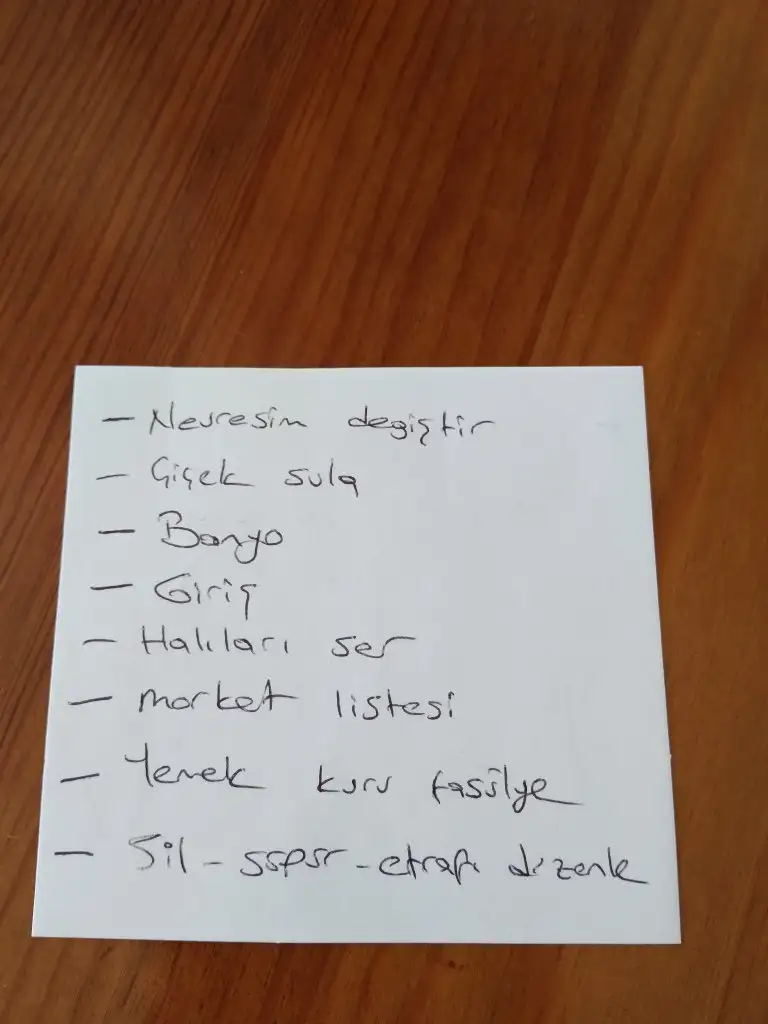 - Nevresim değiştir
- Çiçek sula
- Banyo
- Giriş
- Halıları ser
- market listesi
- Yemek kuru fasulye
- Sil - süpür - etrafı düzenle